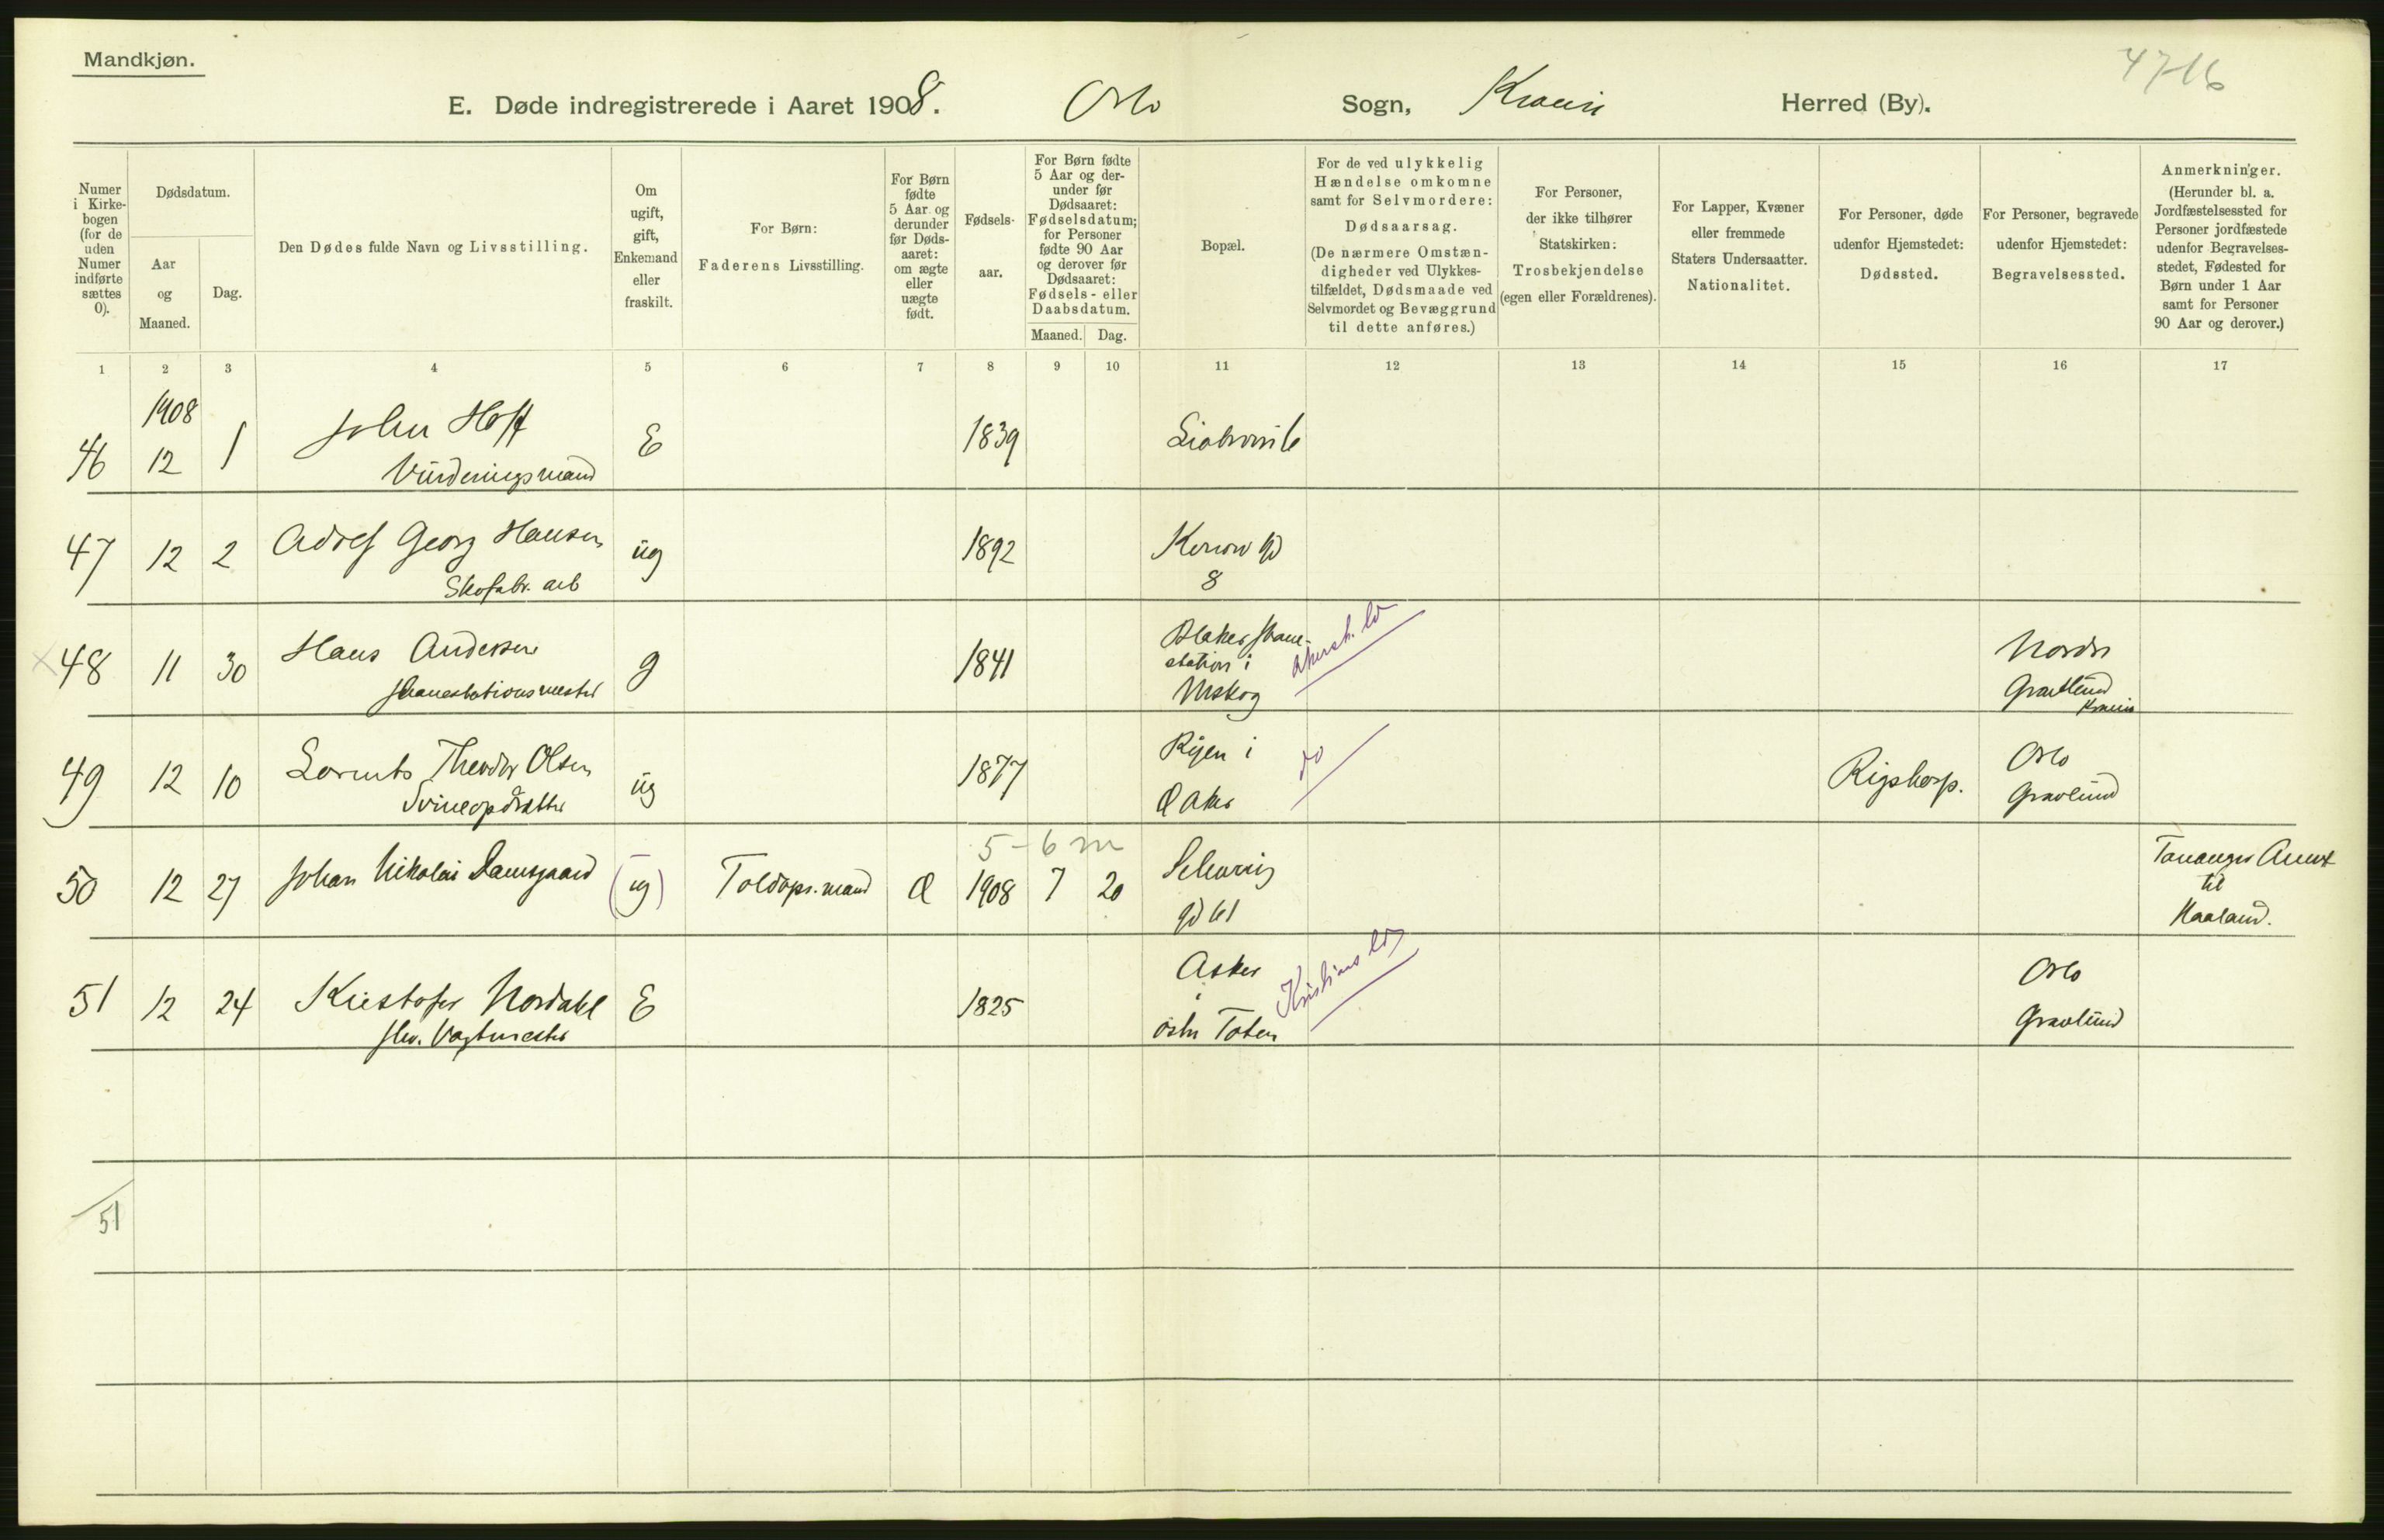 Mandkjøn.
E. Døde indregistrerede i Aaret 1908. Oslo Sogn, Kraniа Herred (By).
Numer i Kirkebogen (for de uden Numer indførte sættes 0).
Dødsdatum.
Aar og Maaned.
Dag.
Den Dødes fulde Navn og Livsstilling.
Om ugift, gift, Enkemand eller fraskilt.
For Børn: Faderens Livsstilling.
For Børn fødte 5 Aar og derunder før Dødsaaret: om ægte eller uægte født.
Fødselsaar.
For Børn fødte 5 Aar og derunder før Dødsaaret: Fødselsdatum; for Personer fødte 90 Aar og derover før Dødsaaret: Fødsels- eller Daabsdatum.
Maaned. Dag.
Bopæl.
For de ved ulykkelig Hændelse omkomne samt for Selvmordere: Dødsaarsag. (De nærmere Omstændigheder ved Ulykkestilfældet, Dødsmaade ved Selvmordet og Bevæggrund til dette anføres.)
For Personer, der ikke tilhører Statskirken: Trosbekjendelse (egen eller Forældrenes).
For Lapper, Kvæner eller fremmede Staters Undersaatter. Nationalitet.
For Personer, døde udenfor Hjemstedet: Dødssted.
For Personer, begravede udenfor Hjemstedet: Begravelsessted.
Anmerkninger. (Herunder bl. a. Jordfæstelsessted for Personer jordfæstede udenfor Begravelsesstedet, Fødested for Børn under 1 Aar samt for Personer 90 Aar og derover.)
1 2 3 4 5 6 7 8 9 10 11 12 13 14 15 16 17
1908
46 12 1 John Hoff E 1839
Vurderingsmand
47 12 2 Adolf Georg Hansen ug 1892
Skofabr. arb 8
48 11 30 Hans Andersen g 1841
station i
Akersh. Nordre
Gravlund
Krania
49 12 10 Lorents Theodor Olsen ug 1877 Ryen i do Rigshosp. Oslo
Svineopdrætter Ø Aker Gravlund
5-6 m
50 12 27 Johan Nikolai Damsgaard (ug) Toldops.mand 1908 7 20 Schweig
gd 61
Tananger Annex
til
Haaland.
51 12 24 Kristofer Nordahl E 1825 Asker Kristians Oslo
i
fhv. Vagtmester østre Toten Gravlund
51